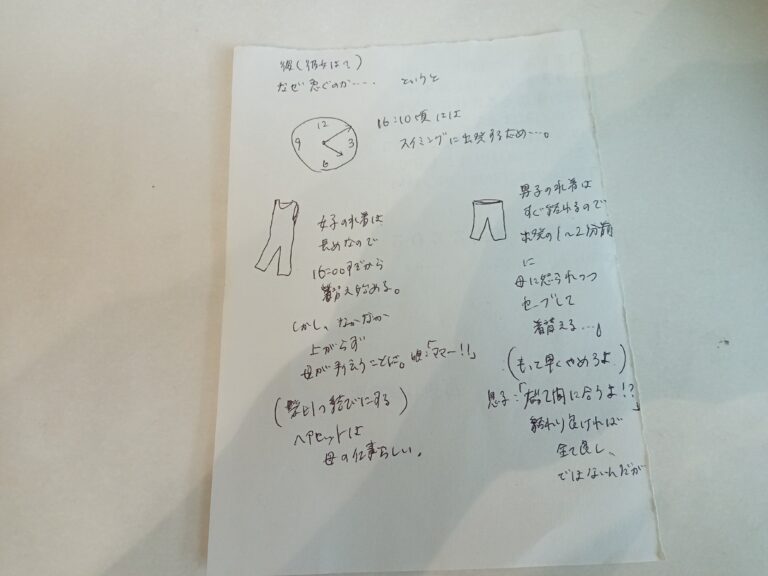 なぜ急ぐのか…… というと
12
9 3
6
16:10頃には
スイミングに出発するため…。
女子の水着は
長めなので
16:00すぎから
着替え始める。
しかし、なかなか
上がらず
母が手伝うことに。娘:「ママー!!」
(髪は1つ結びにする)
ヘアセットは
母の仕事らしい。
男子の水着は
すぐ終わるので
出発の1〜2分前
に
母に怒られつつ
セーブして
着替える…。
(もっと早くやめろよ)
息子:「だって間に合うよ!?」
終わり良ければ
全て良し、
ではないんだが